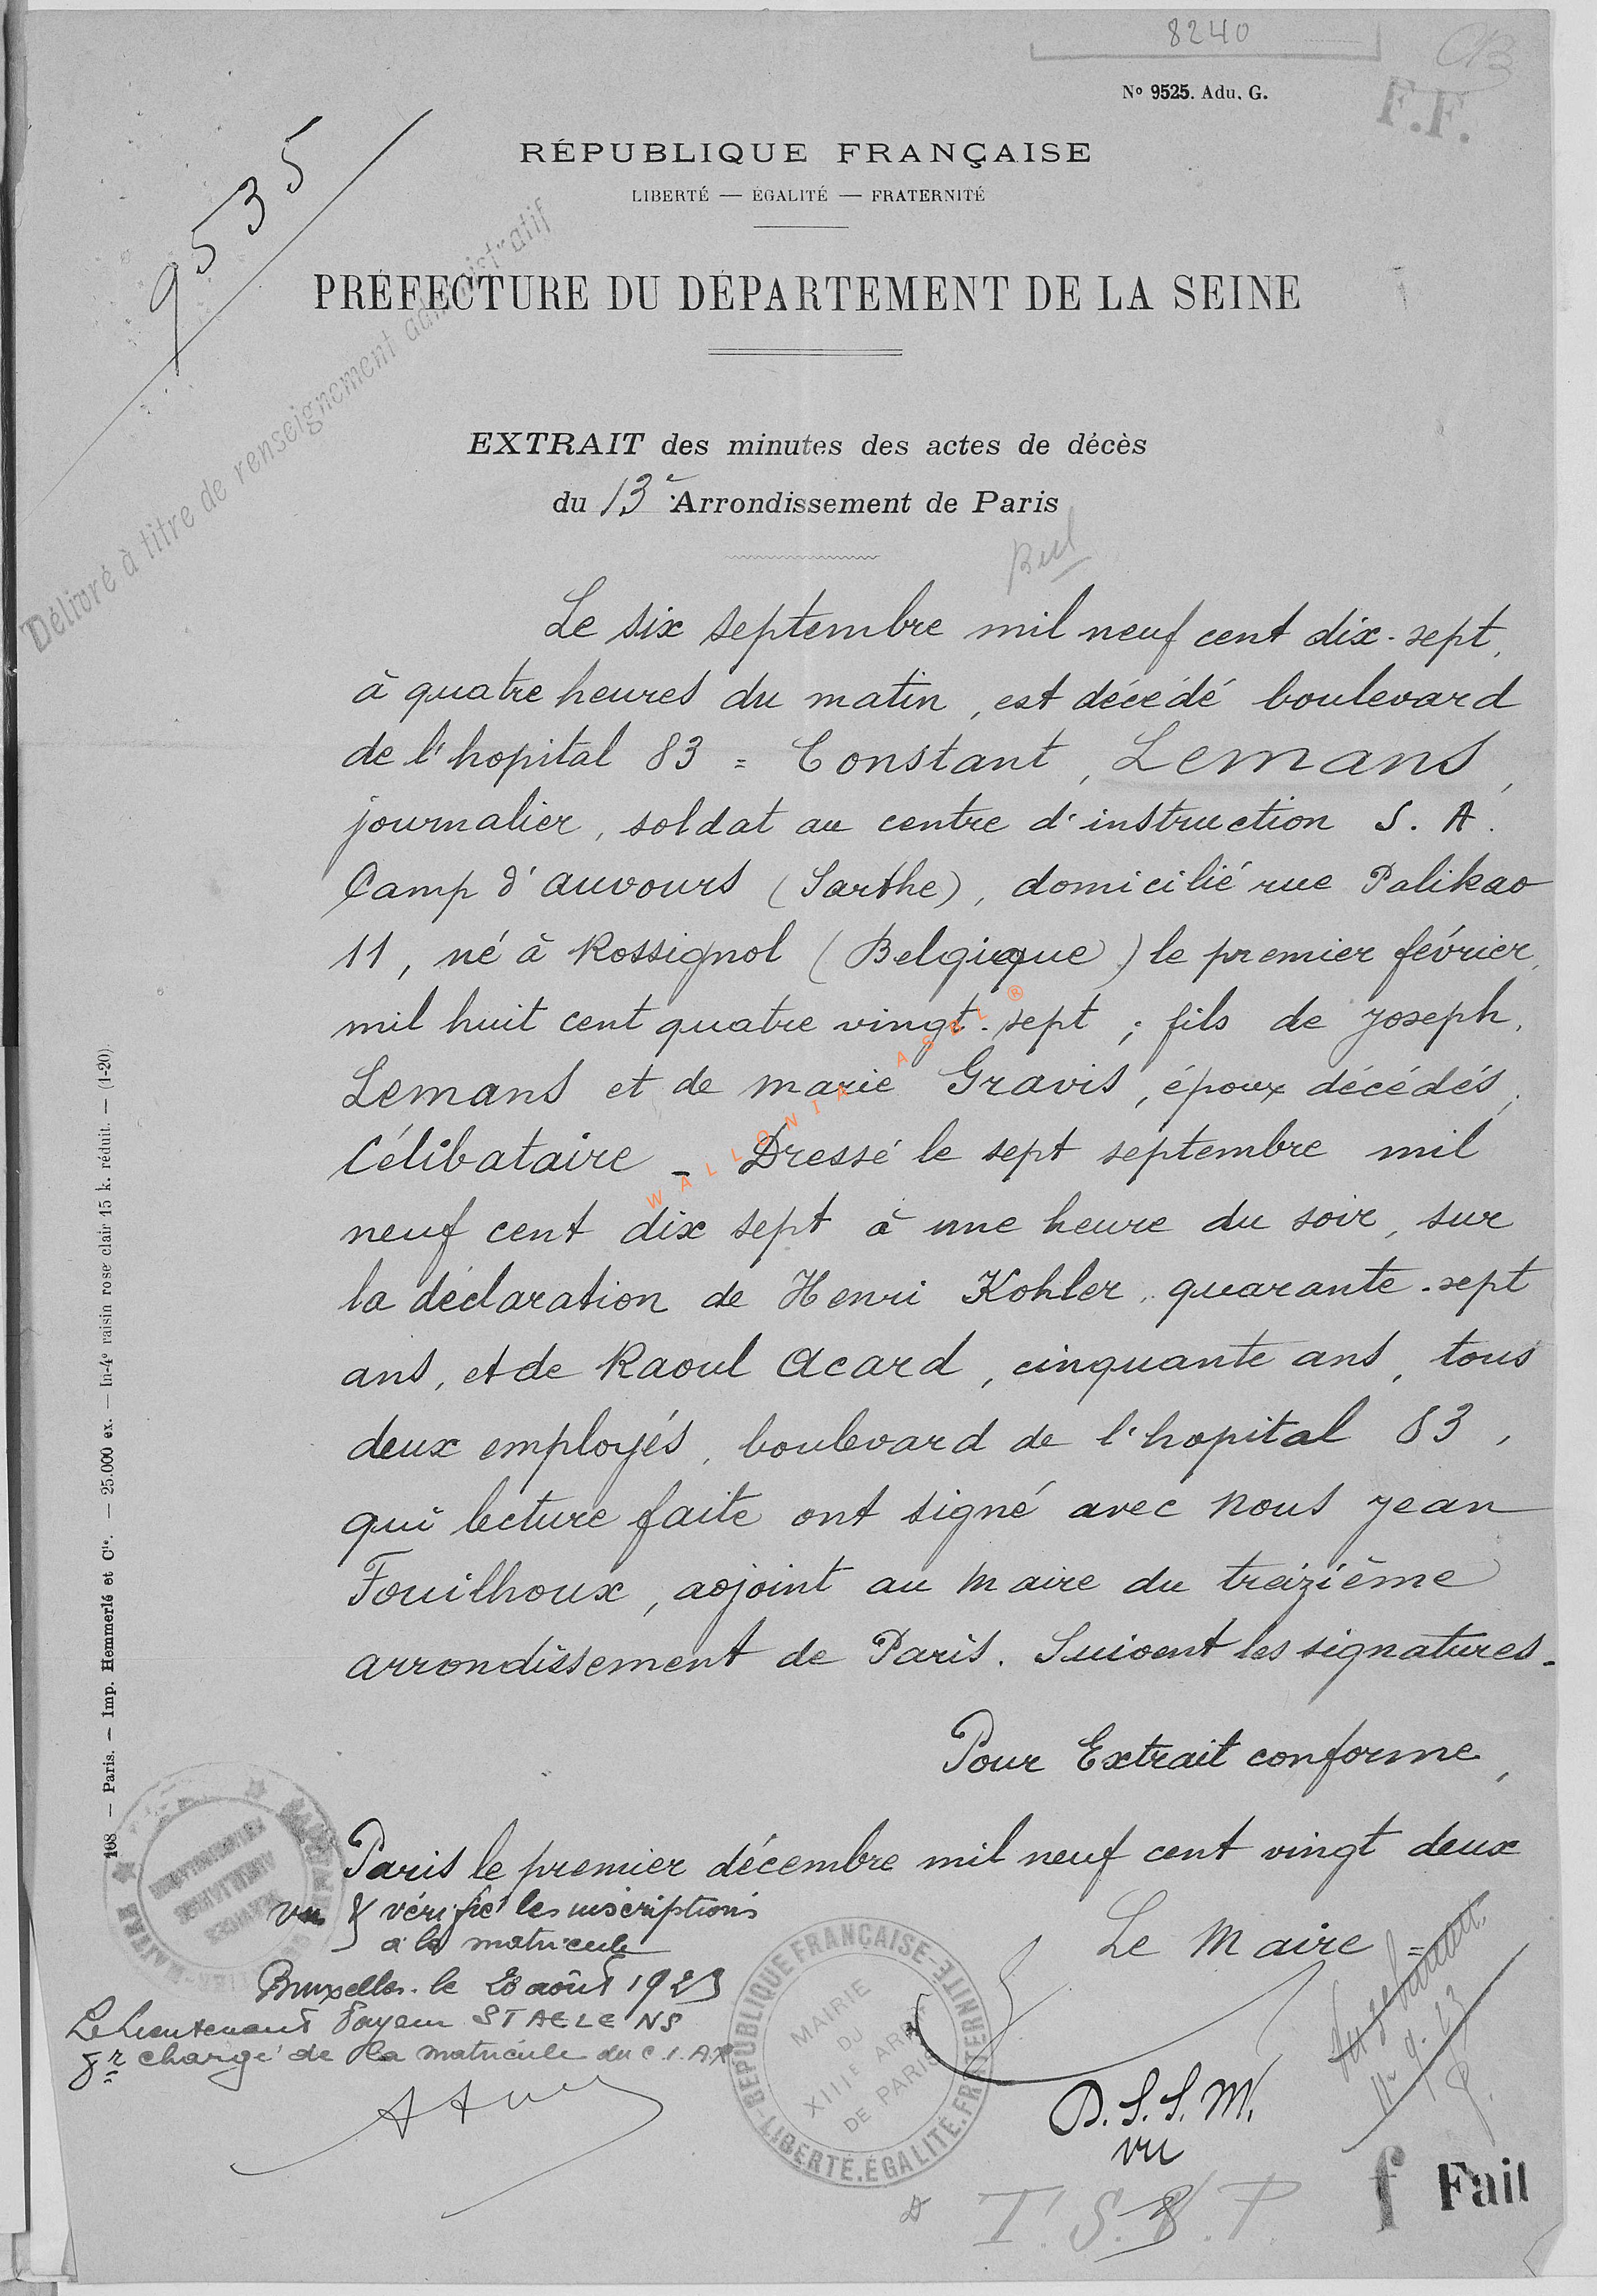 8240
CB
Nº 9525. Adu. G.
F.F.
9535
RÉPUBLIQUE FRANÇAISE
LIBERTÉ — ÉGALITÉ — FRATERNITÉ
PRÉFECTURE DU DÉPARTEMENT DE LA SEINE
Délivré à titre de renseignement administratif
EXTRAIT des minutes des actes de décès
du 13e Arrondissement de Paris
Le six septembre mil neuf cent dix-sept,
à quatre heures du matin, est décédé boulevard
de l'hopital 83 = Constant, Lemans,
journalier, soldat au centre d'instruction S. A.
Camp d'auvours (Sarthe), domicilié rue Palikao
11, né à Rossignol (Belgique) le premier février,
mil huit cent quatre vingt-sept; fils de Joseph,
Lemans et de Marie Gravis, époux décédés,
Célibataire - Dressé le sept septembre mil
neuf cent dix sept à une heure du soir, sur
la déclaration de Henri Kohler, quarante-sept
ans, et de Raoul Acard, cinquante ans, tous
deux employés, boulevard de l'hopital 83,
qui lecture faite ont signé avec Nous Jean
Fouilhoux, adjoint au Maire du treizième
arrondissement de Paris. Suivent les signatures.
Pour Extrait conforme,
Paris le premier décembre mil neuf cent vingt deux
Le Maire =
vu & vérifié les inscriptions
à la matricule
Bruxelles. le 20 août 1923
Le Lieutenant Payeur STAELENS
chargé de la matricule du C.I.A.
REPUBLIQUE FRANÇAISE-LIBERTÉ.ÉGALITÉ.FRATERNITE-
MAIRIE
DU
XIIIE ARRt
DE PARIS
D.S.S.M.
vu
T.S.V.P.
f Fait
WALLONIA ASBL ®
108 — Paris. — Imp. Hemmerlé et Cie. — 25.000 ex. — In-4º raisin rose clair 15 k. réduit. — (1-20).